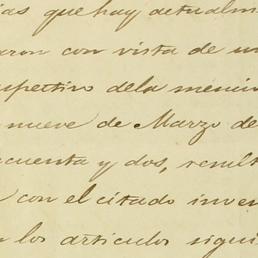 ias que hay actualm
aron con vista de un
spectivo dela mencio
nueve de Marzo de
cuenta y dos, result
con el citado inven
los articulos sigui